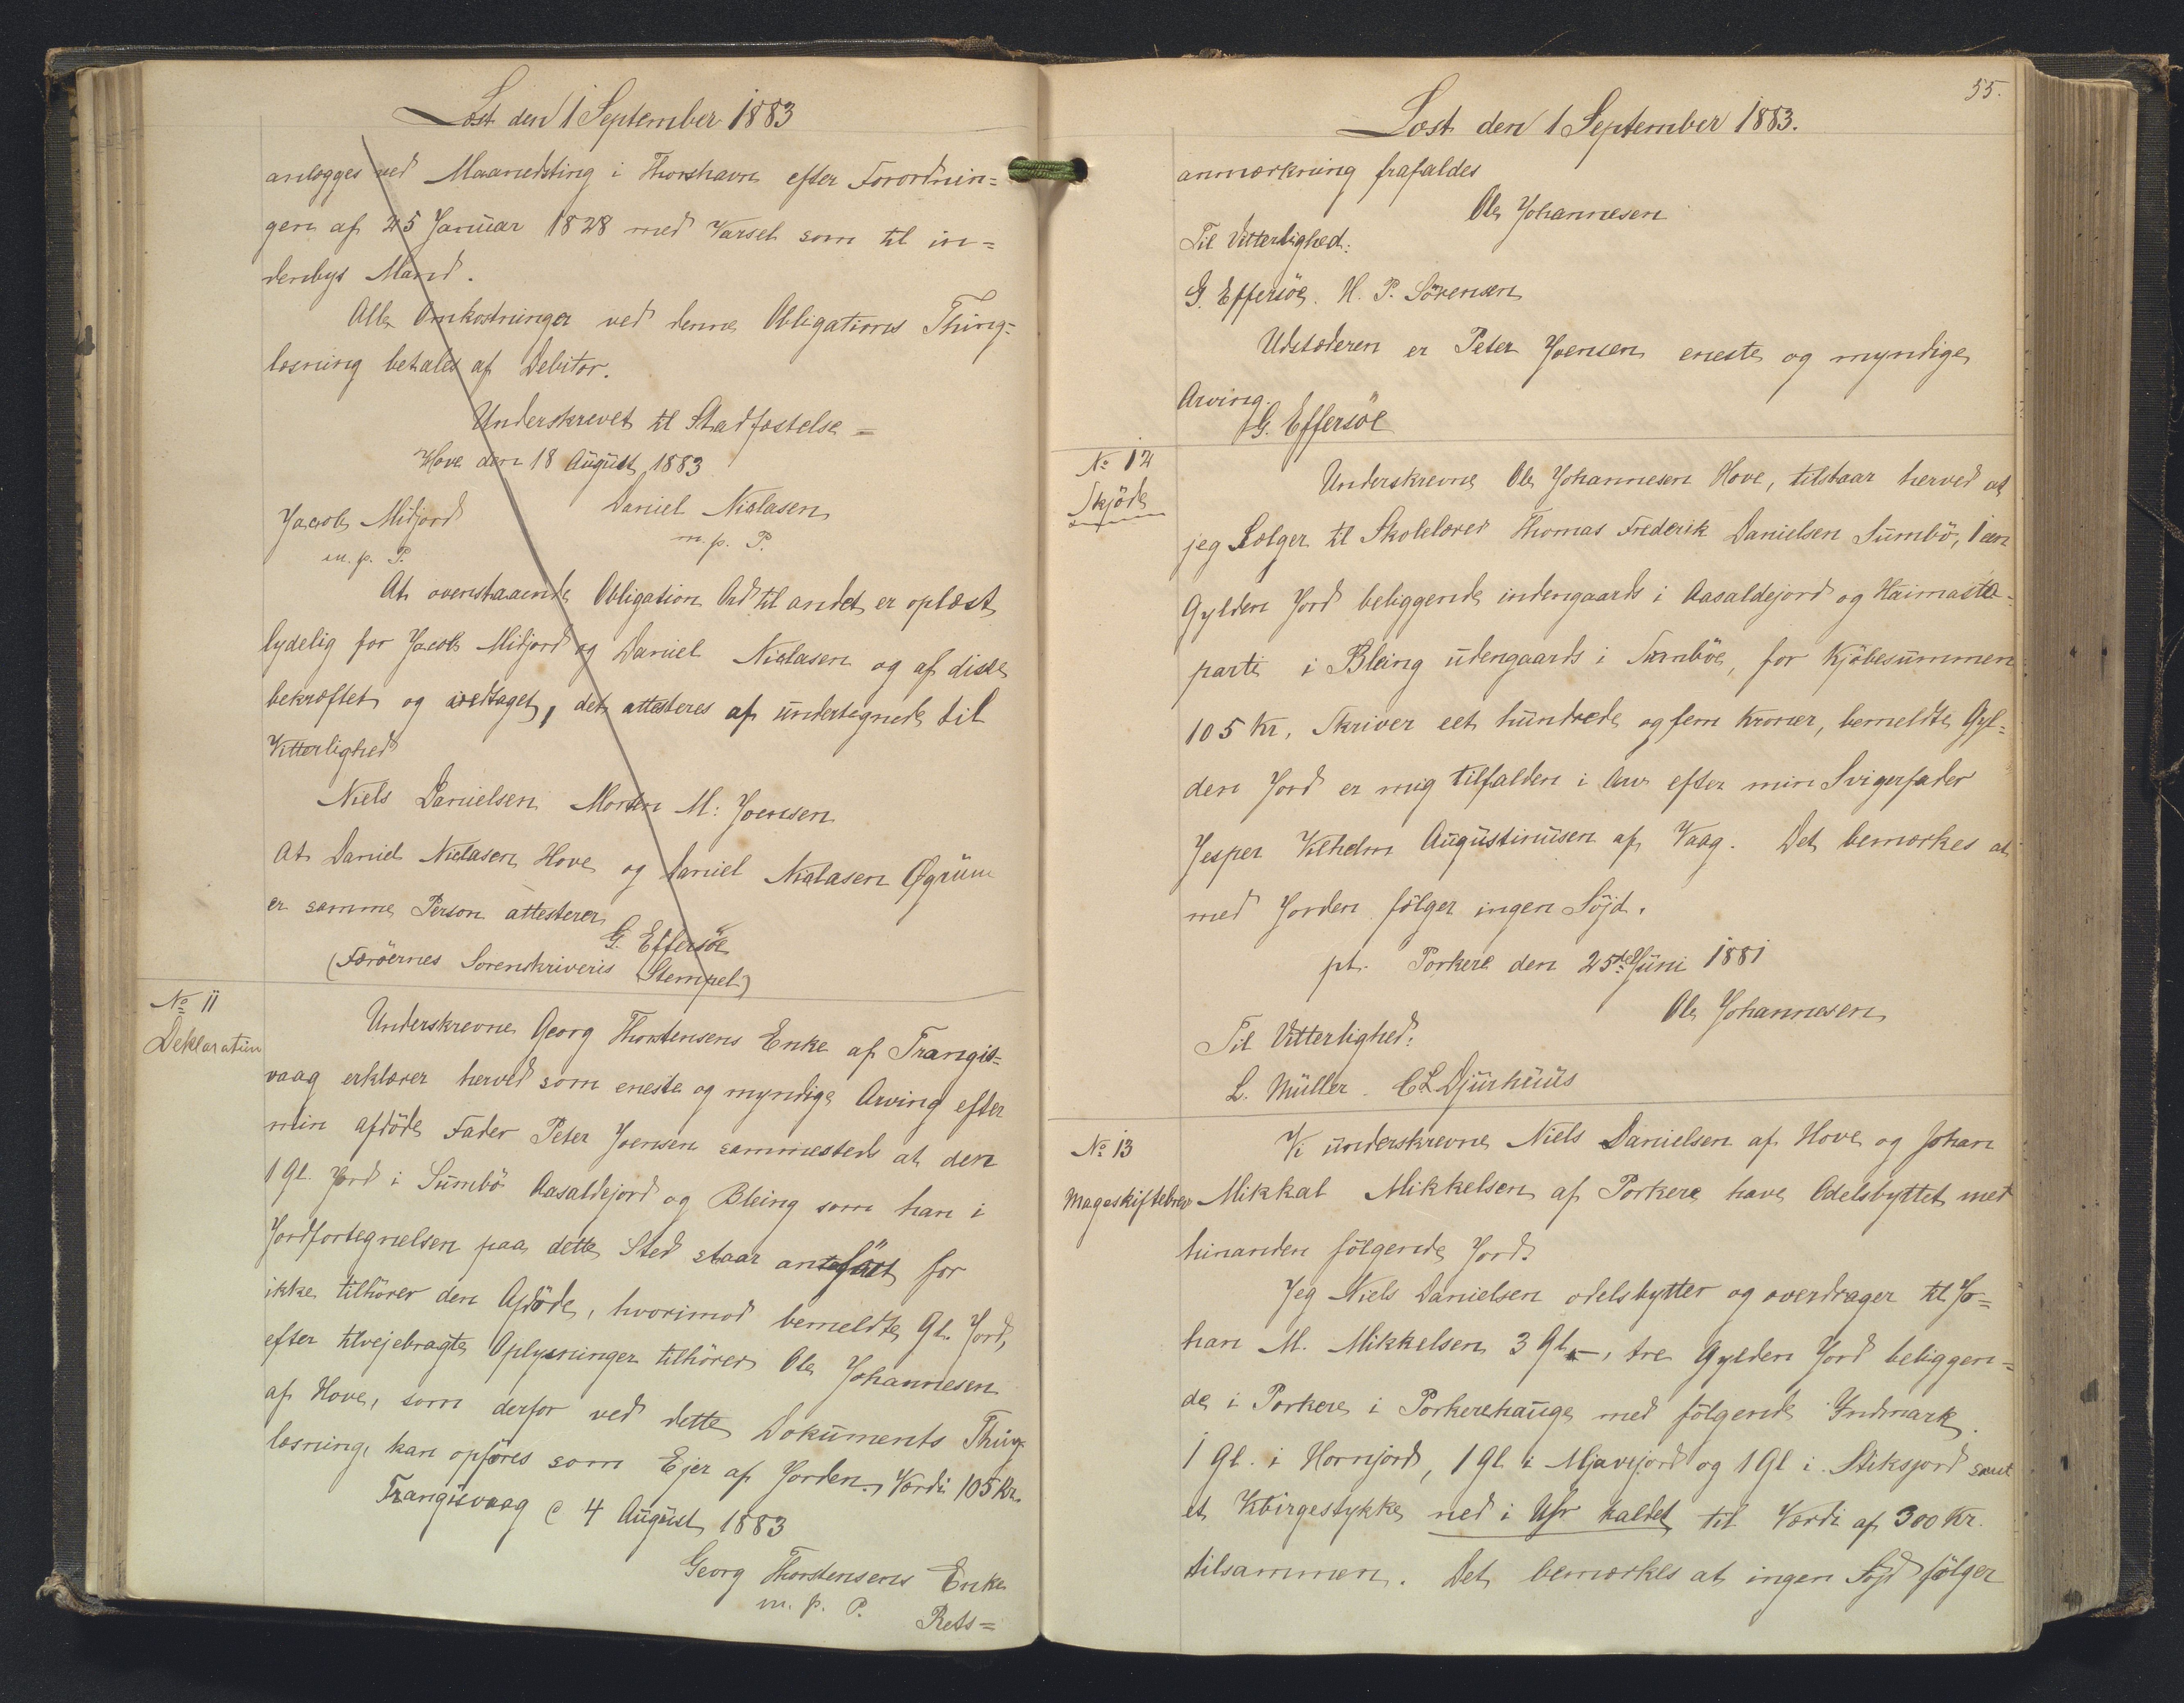 Læst den 1 September 1883
anlægges ved Maanedsting i Thorshavn efter Forordnin=
gen af 25 Januar 1828 med Varsel som til in=
denbys Mand.
Alle Omkostninger ved denne Obligations Thing=
læsning betales af Debitor.
Underskrevet til Stadfæstelse =
Hove den 18 August 1883
Jacob Midjord Daniel Nielasen
m. p. P. m. p. P.
At ovenstaaende Obligation Ord til andet er oplæst
lydelig for Jacob Midjord og Daniel Nielasen og af disse
bekræftet og vedtaget, det attesteres af undertegnede til
Vitterlighed
Niels Danielsen Morten M: Joensen
At Daniel Nielasen Hove og Daniel Nielasen Øgrüm
er samme Person attesterer
G. Effersöe
(Færöernes Sorenskriveris Stempel)
No 11
Deklaration
Underskrevne Georg Thorstensens Enke af Trangis=
vaag erklærer herved som eneste og myndige Arving efter
min afdöde Fader Peter Joensen sammesteds at den
1 Gl. Jord i Sumbö Aasaldejord og Bleing som han i
Jordfortegnelsen paa dette Sted staar anført for
ikke tilhörer den Afdöde, hvorimod bemeldte Gl. Jord,
efter tilvejebragte Oplysninger tilhörer Ole Johannesen
af Hove, som derfor ved dette Dokuments Thing
læsning, kan opföres som Ejer af Jorden. Værdi 105 Kr.
Trangisvaag d 4 August 1883
Georg Thorstensens Enke
m. p. P.
Rets=
55.
Læst den 1 September 1883.
anmærkning frafaldes
Ole Johannesen
Til Vitterlighed:
G. Effersöe. H. P. Sörensen
Udstæderen er Peter Joensen eneste og myndige
Arving.
G. Effersöe
No 12
Skjöde
Underskrevne Ole Johannesen Hove, tilstaar herved at
jeg Sælger til Skolelærer Thomas Frederik Danielsen Sumbö, 1 een
Gylden Jord beliggende indengaards i Aasaldejord og Haimasta=
parti i Bleing udengaards i Sumböe, for Kjöbesummen
105 Kr. Skriver eet hundrede og fem Kroner, bemeldte Gyl=
den Jord er mig tilfalden i Arv efter min Svigerfader
Jesper Vilhelm Augustinusen af Vaag. Det bemærkes at
med Jorden fölger ingen Söjd.
pt. Porkere den 25de Juni 1881
Ole Johannesen
Til Vitterlighed:
L. Müller. C L Djurhuus
No 13
Mageskiftebrev
Vi underskrevne Niels Danielsen af Hove og Johan
Mikkal Mikkelsen af Porkere have Odelsbyttet med
hinanden fölgende Jord.
Jeg Niels Danielsen odelsbytter og overdrager til Jo=
han M. Mikkelsen 3 Gl. , tre Gylden Jord beliggen=
de i Porkere i Porkerehauge med fölgende Indmark.
1 Gl. i Hornjord, 1 Gl i Mjavejord og 1 Gl i Stiksjord samt
et ned i Uhr kaldet til Værdi af 300 Kr.
tilsammen. Det bemærkes at ingen Söjd fölger